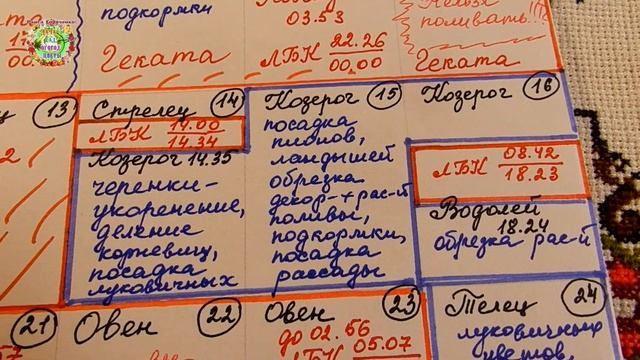 подкормки
Геката
03.53
ЛБК 22.26
00.00
Нельзя
поливать!!!
Геката
00
13
Стрелец 14
ЛБК 14.00
14.34
Козерог 14.35
черенки-
укоренение,
деление
корневищ,
посадка
луковичных
Козерог 15
посадка
пионов,
ландышей
обрезка
декор-х рас-й
поливы,
подкормки,
посадка
рассады
Козерог 16
ЛБК 08.42
18.23
Водолей
18.24
обрезка рас-й
21
Овен 22
Овен 23
до 02.56
ЛБК 05.07
Телец 24
луковичных
цветов